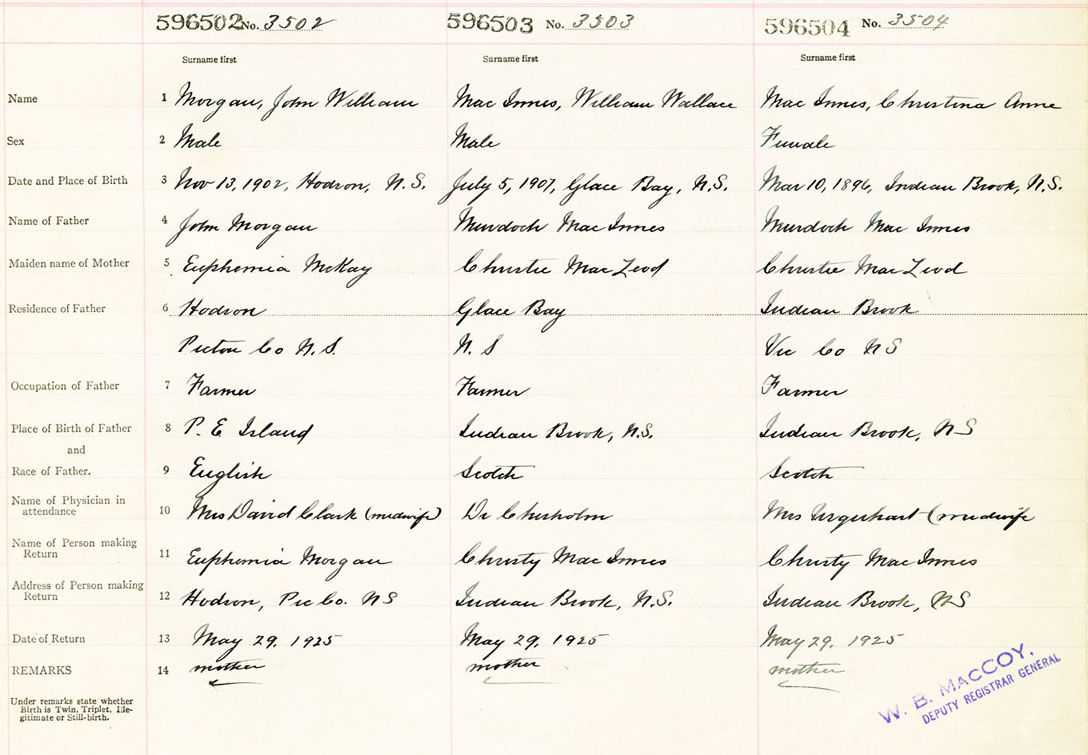 596502 No. 3502 596503 No. 3503 596504 No. 3504
Surname first Surname first Surname first
Name 1 Morgan, John William Mac Innes, William Wallace Mac Innes, Christina Anne
Sex 2 Male Male Female
Date and Place of Birth 3 Nov 13, 1902, Hodson, N.S. July 5, 1907, Glace Bay, N.S. Mar 10, 1896, Indian Brook, N.S.
Name of Father 4 John Morgan Murdoch Mac Innes Murdoch Mac Innes
Maiden name of Mother 5 Euphemia McKay Christie Mac Leod Christie Mac Leod
Residence of Father 6 Hodson Glace Bay Indian Brook
Pictou Co N.S. N.S Vic Co NS
Occupation of Father 7 Farmer Farmer Farmer
Place of Birth of Father 8 P. E. Island Indian Brook, N.S. Indian Brook, NS
and
Race of Father. 9 English Scotch Scotch
Name of Physician in
attendance 10 Mrs David Clark (midwife) Dr Chisholm Mrs Urquhart (midwife
Name of Person making
Return 11 Euphemia Morgan Christy Mac Innes Christy Mac Innes
Address of Person making
Return 12 Hodson, Pic Co. NS Indian Brook, N.S. Indian Brook, NS
Date of Return 13 May 29, 1925 May 29, 1925 May 29, 1925
REMARKS 14 mother mother mother
Under remarks state whether
Birth is Twin, Triplet, Ille-
gitimate or Still-birth.
W. B. MACCOY,
DEPUTY REGISTRAR GENERAL